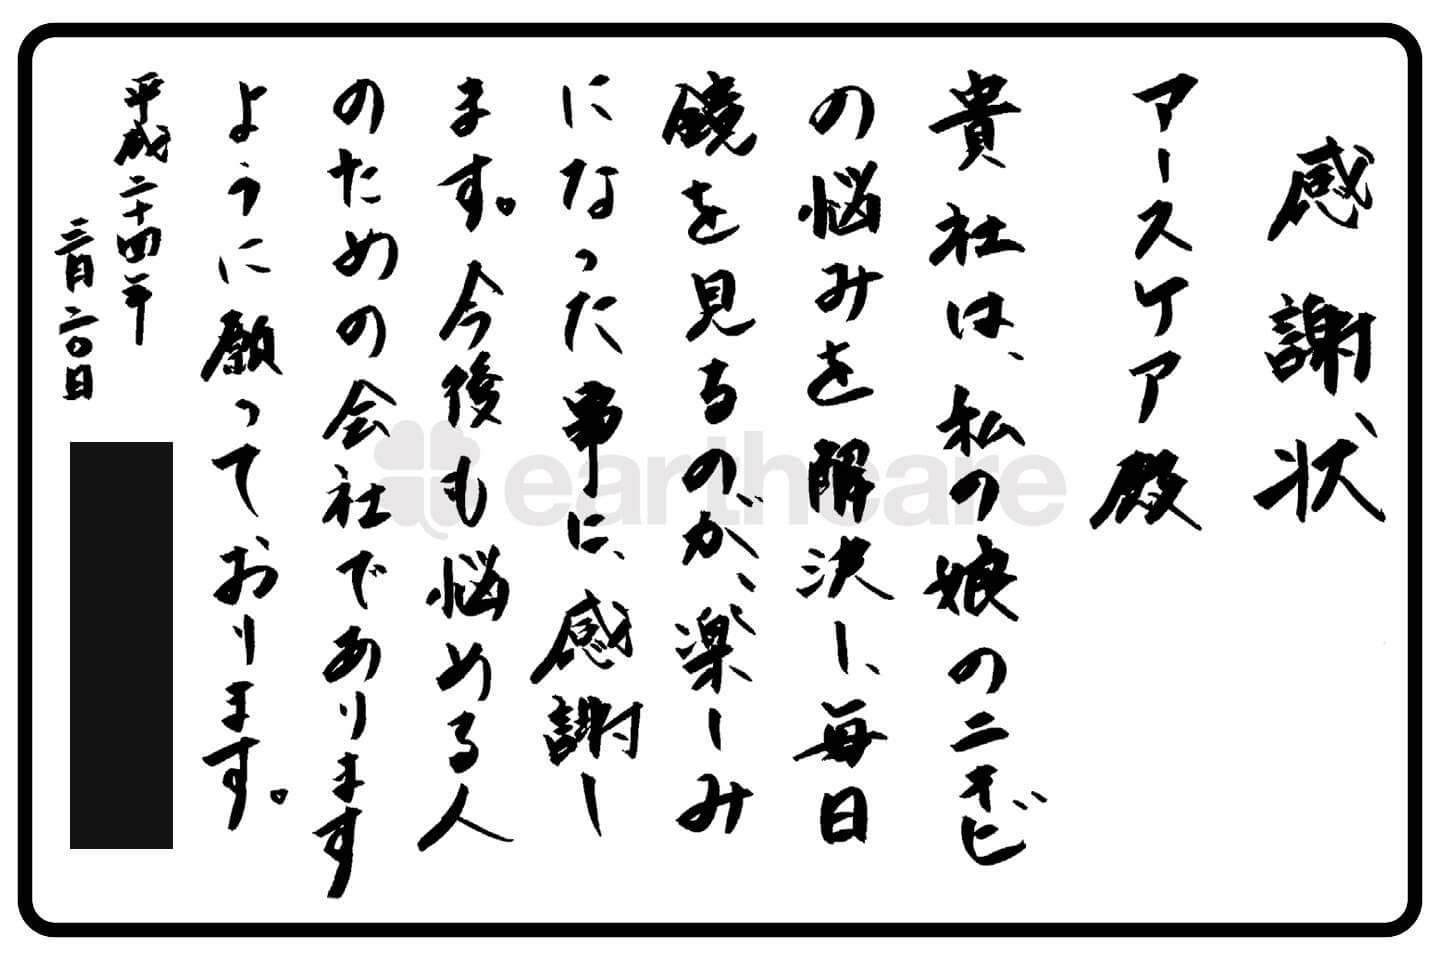 感謝状
アースケア殿
貴社は、私の娘のニキビ
の悩みを解決し、毎日
鏡を見るのが、楽しみ
になった事に、感謝し
ます。今後も悩める人
のための会社であります
ように願っております。
平成二十四年
三月二〇日
earthcare